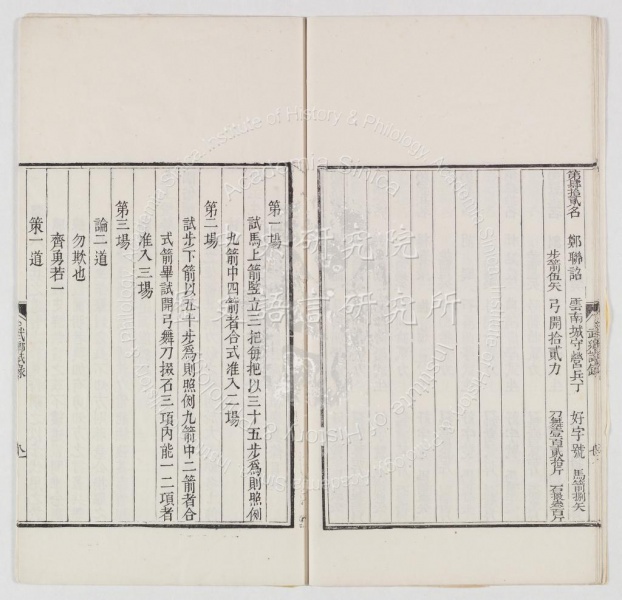 第肆拾貳名　鄭聯詔　雲南城守營兵丁　好字號　馬箭捌矢
步箭伍矢　弓開拾貳力　刀舞壹百貳拾斤　石掇叁百斤
第一場
試馬上箭竪立三把每把以三十五步爲則照例
九箭中四箭者合式准入二場
第二場
試步下箭以五十步爲則照例九箭中二箭者合
式箭畢試開弓舞刀掇石三項內能一二項者
准入三場
第三場
論二道
勿欺也
齊勇若一
策一道
武鄉試錄
Institute of History & Philology, Academia Sinica